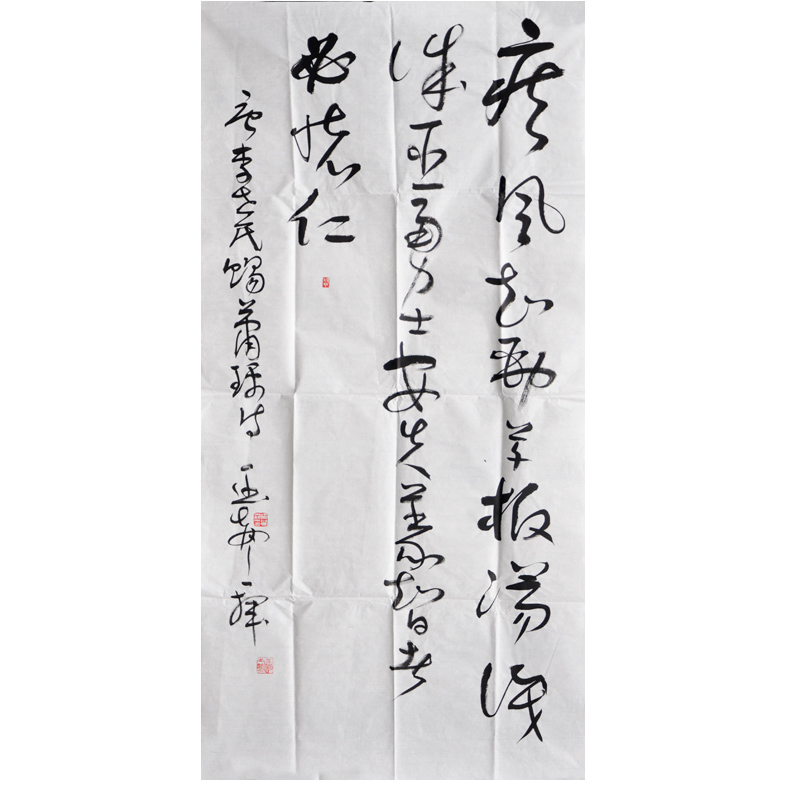 疾风知劲草板荡识
诚臣勇夫安识义智者
必怀仁
唐李世民赐萧瑀诗